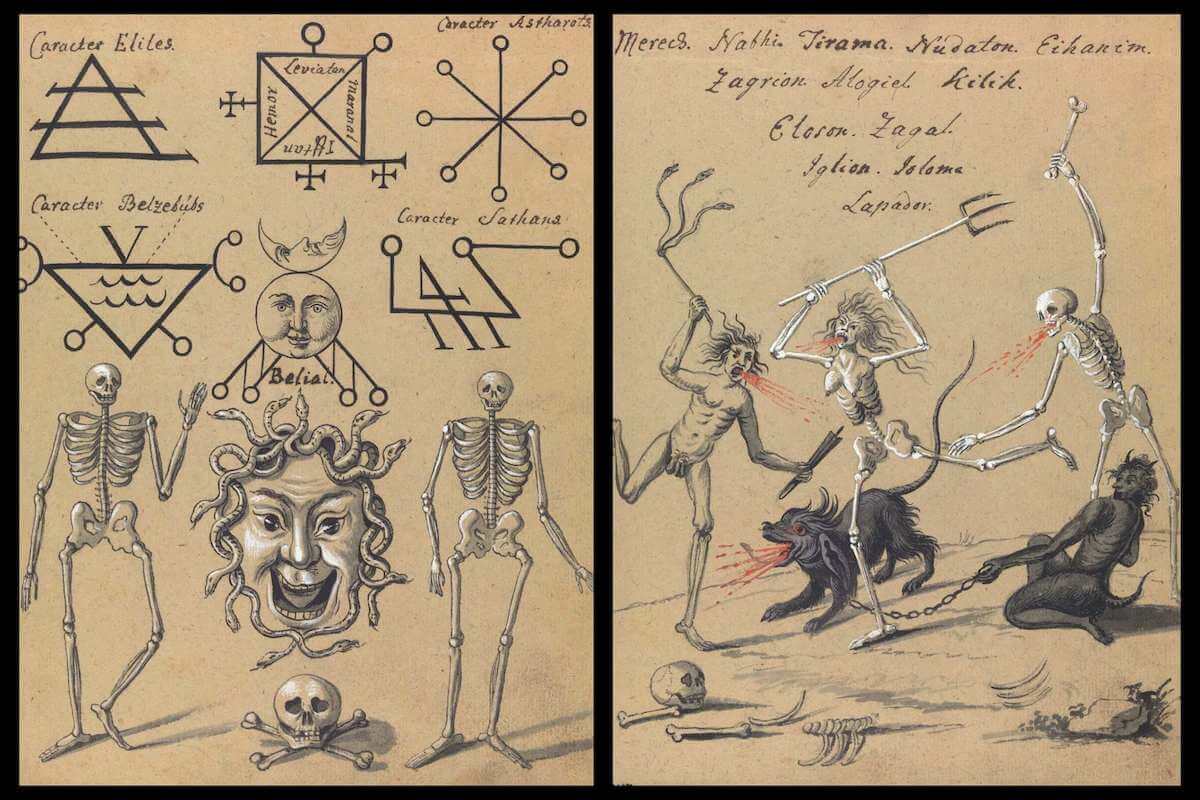 Caracter Eliles.
Leviatan
Maranal
Hemor
Caracter Astharots.
Caracter Belzebubs
V
Caracter Sathans
Belial.
Merech. Nabhi. Tirama. Nudaton. Eihanim.
Zagrion. Alogiel. Kilik.
Eloson. Zagal.
Iglion. Ioloma
Lapador.